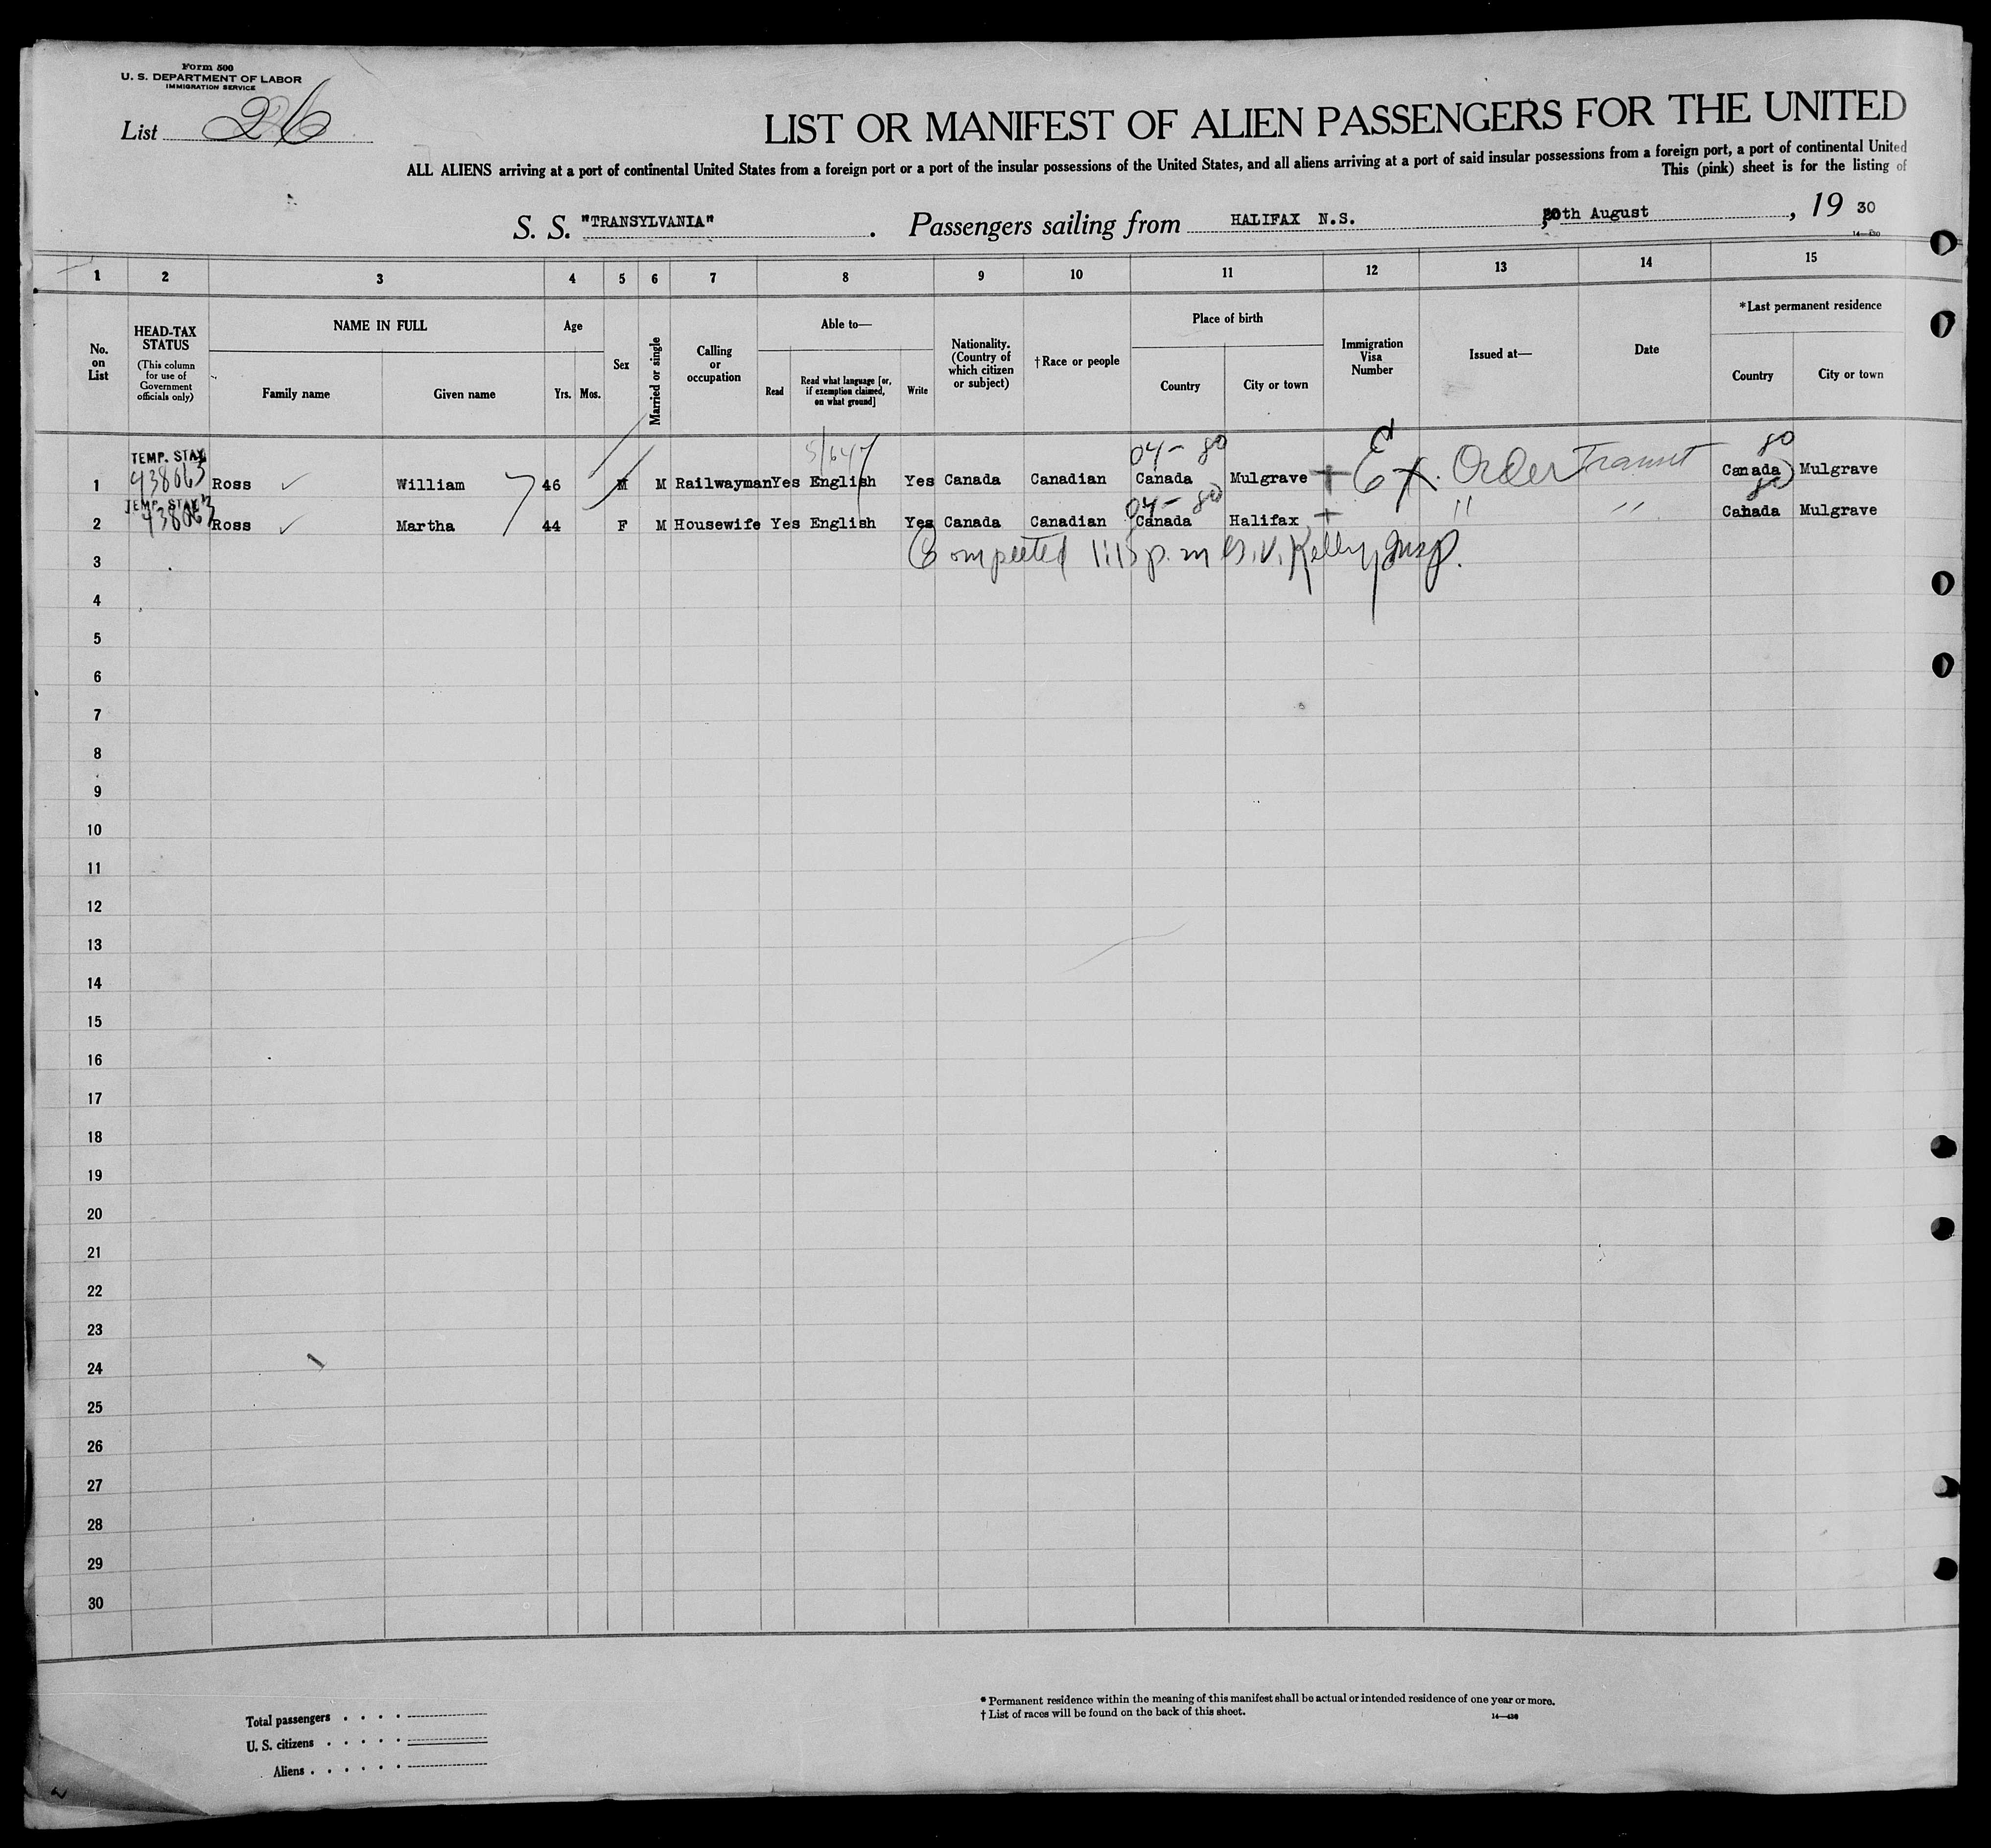 Form 500
U. S. DEPARTMENT OF LABOR
IMMIGRATION SERVICE
List 26
LIST OR MANIFEST OF ALIEN PASSENGERS FOR THE UNITED
ALL ALIENS arriving at a port of continental United States from a foreign port or a port of the insular possessions of the United States, and all aliens arriving at a port of said insular possessions from a foreign port, a port of continental United
This (pink) sheet is for the listing of
S. S. "TRANSYLVANIA". Passengers sailing from HALIFAX N.S. th August, 19 30
1 2 3 4 5 6 7 8 9 10 11 12 13 14 15
No. on List
HEAD-TAX STATUS
(This column for use of Government officials only)
NAME IN FULL
Family name Given name
Age
Yrs. Mos.
Sex
Married or single
Calling or occupation
Able to—
Read Read what language [or, if exemption claimed, on what ground] Write
Nationality. (Country of which citizen or subject)
†Race or people
Place of birth
Country City or town
Immigration Visa Number
Issued at—
Date
*Last permanent residence
Country City or town
TEMP. STAY 04- 80 80
1 438063 Ross William 46 M M Railwayman Yes English Yes Canada Canadian Canada Mulgrave Ex. Order Transit Canada Mulgrave
TEMP. STAY 04- 80 80
2 438063 Ross Martha 44 F M Housewife Yes English Yes Canada Canadian Canada Halifax " " Canada Mulgrave
Completed 1:15 p.m Kelly, Insp.
3
4
5
6
7
8
9
10
11
12
13
14
15
16
17
18
19
20
21
22
23
24
25
26
27
28
29
30
Total passengers . . . .
U. S. citizens . . . . .
Aliens . . . . . .
* Permanent residence within the meaning of this manifest shall be actual or intended residence of one year or more.
† List of races will be found on the back of this sheet.